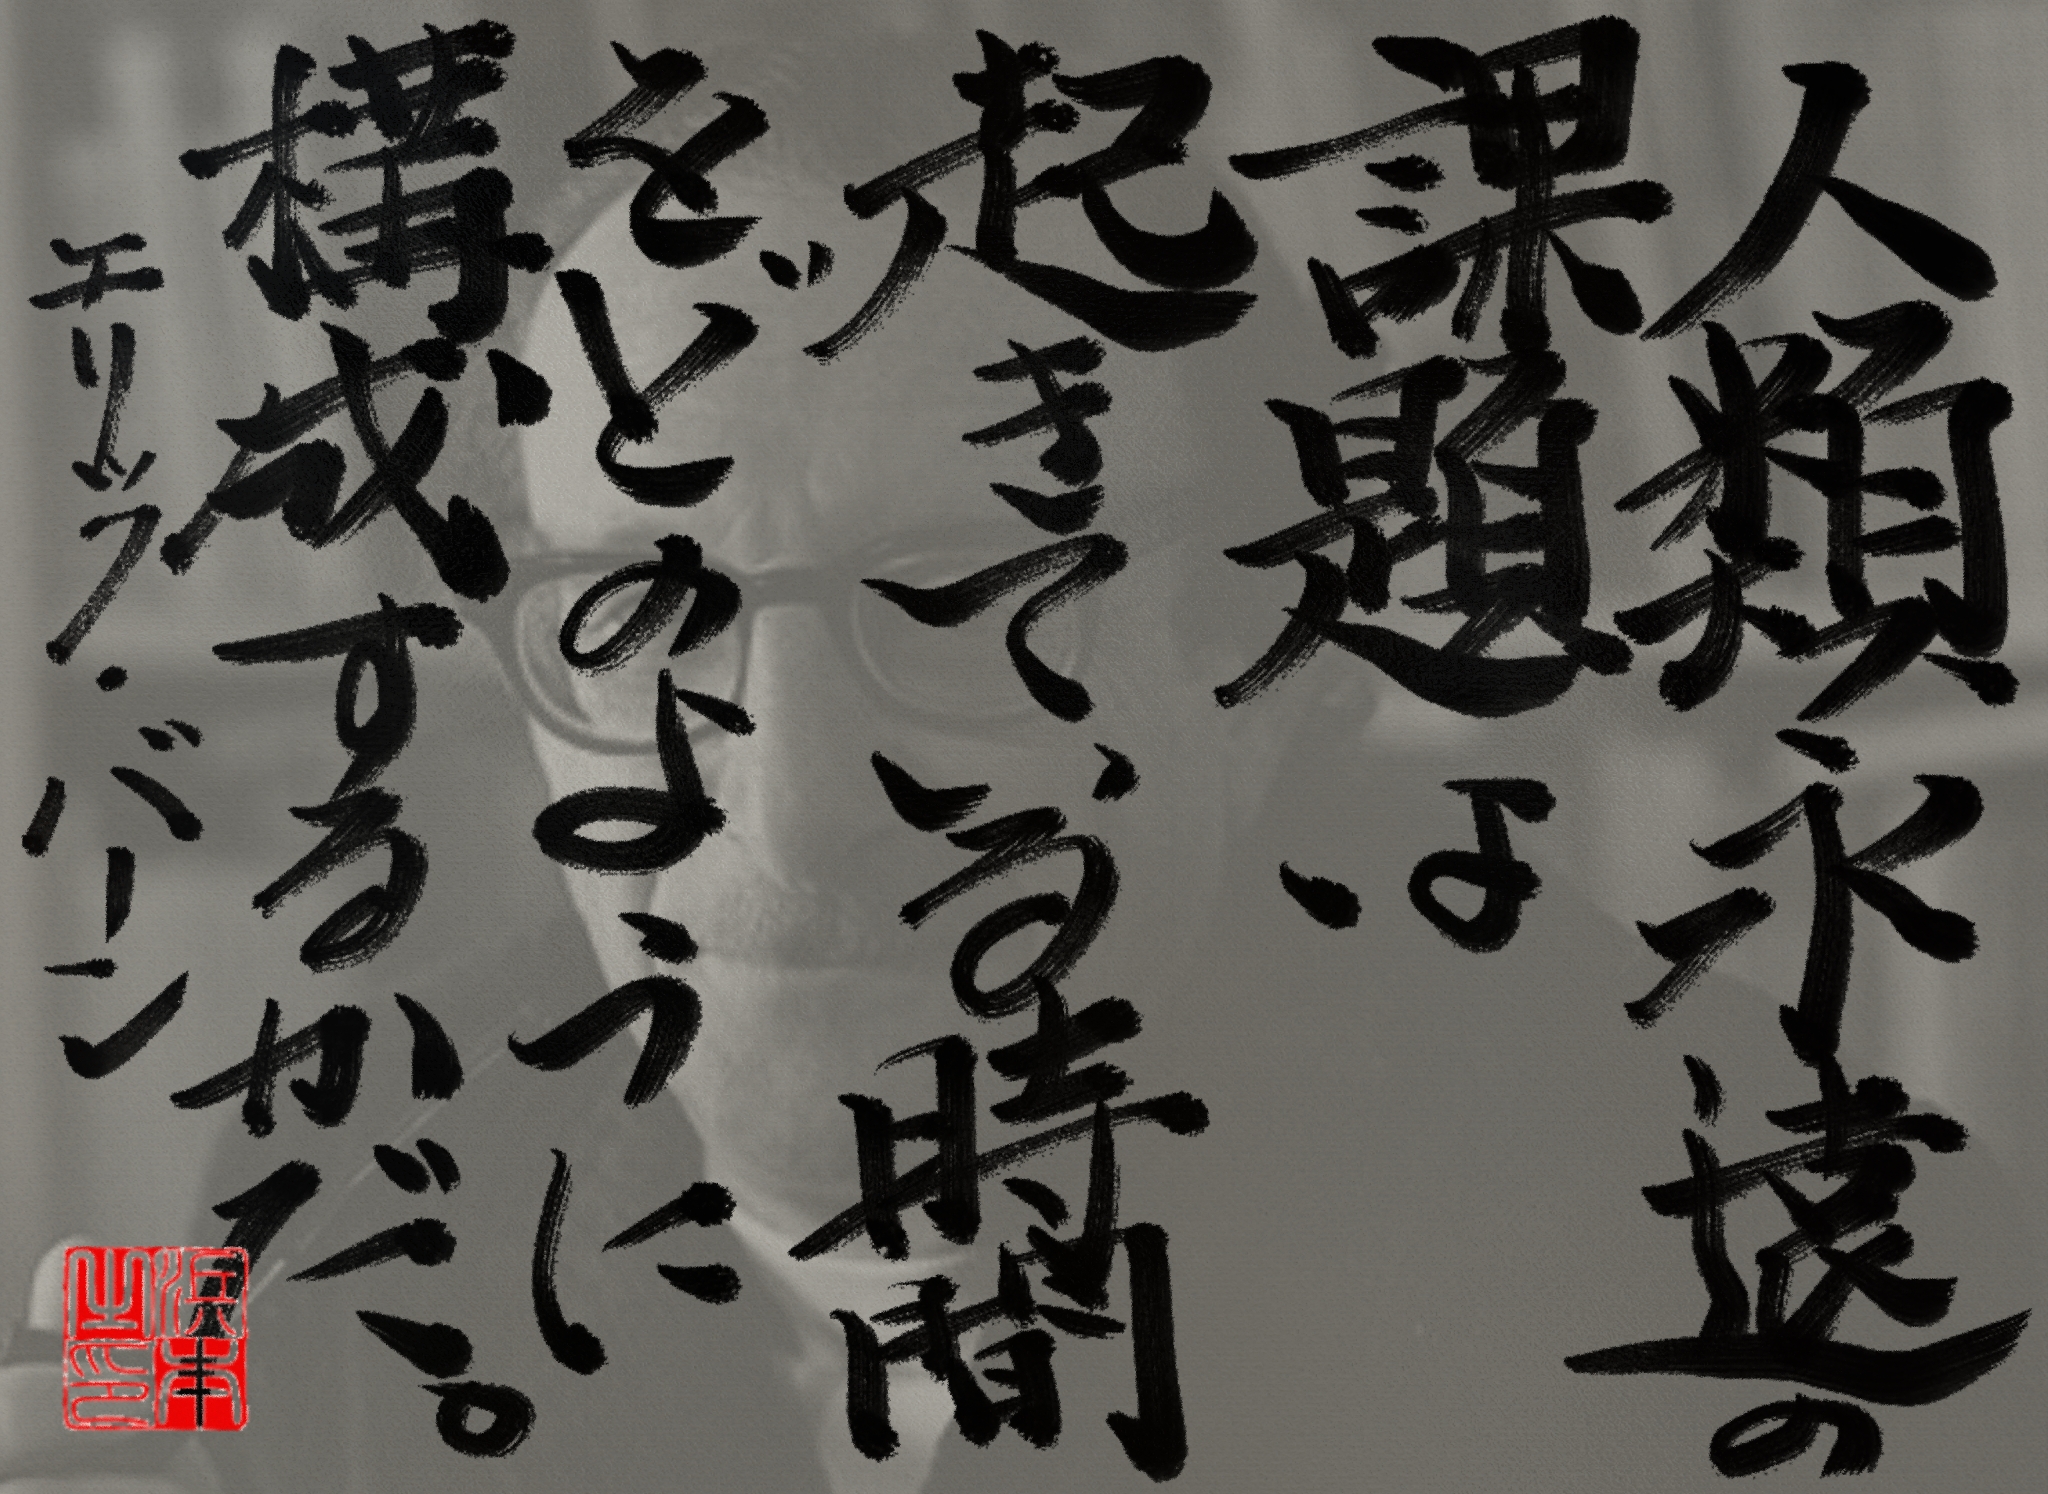 人類永遠の
課題は
起きている時間
をどのように
構成するかだ。
エリック・バーン
浜本
之印